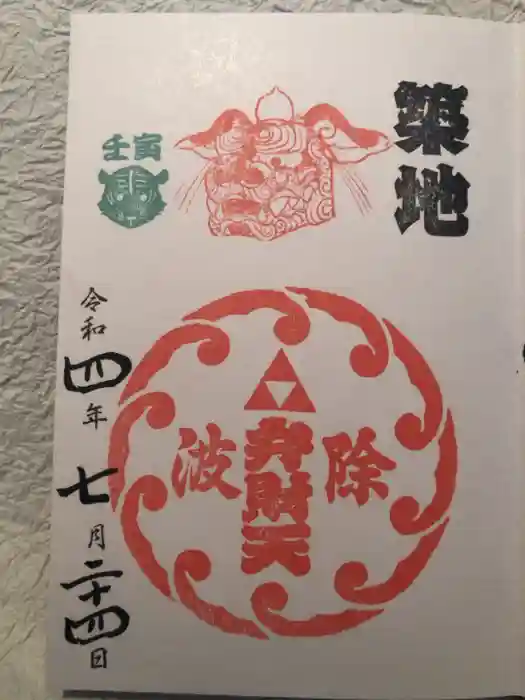 築地
壬寅
除
弁財天
波
令和四年七月二十四日